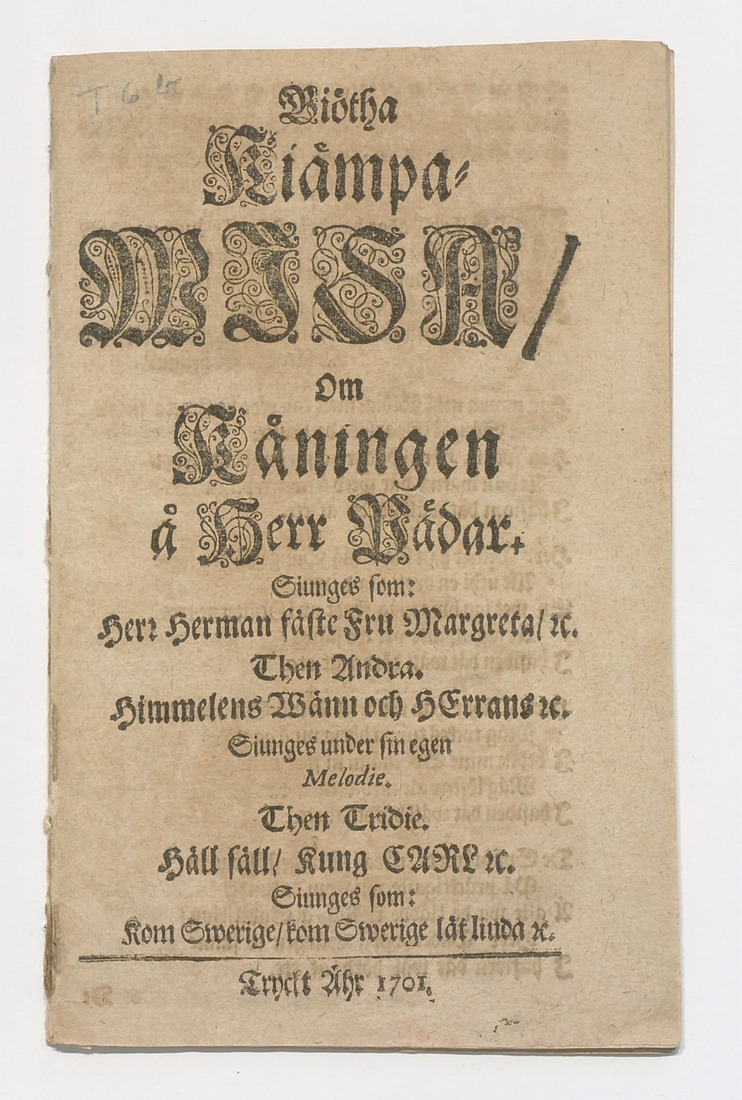 T 6 b
Giötha
Kiämpa-
WJSA/
Om
Kåningen
å Herr Pädar.
Siunges som:
Herr Herman fäste Fru Margreta/ ꝛc.
Then Andra.
Himmelens Wänn och HErrans ꝛc.
Siunges under sin egen
Melodie.
Then Tridie.
Häll säll/ Kung CARL ꝛc.
Siunges som:
Kom Swerige/ kom Swerige lät linda ꝛc.
Tryckt Åhr 1701.